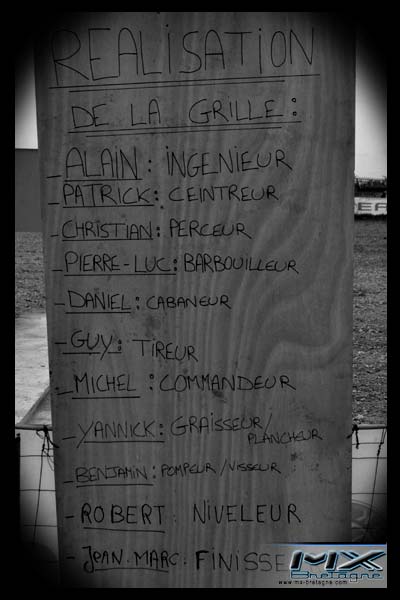 REALISATION
DE LA GRILLE :
- ALAIN : INGENIEUR
- PATRICK : CEINTREUR
- CHRISTIAN : PERCEUR
- PIERRE-LUC : BARBOUILLEUR
- DANIEL : CABANEUR
- GUY : TIREUR
- MICHEL : COMMANDEUR
- YANNICK : GRAISSEUR/
PLANCHEUR
- BENJAMIN : POMPEUR/VISSEUR
- ROBERT : NIVELEUR
- JEAN-MARC : FINISSE
MX
Bretagne
www.mx-bretagne.com